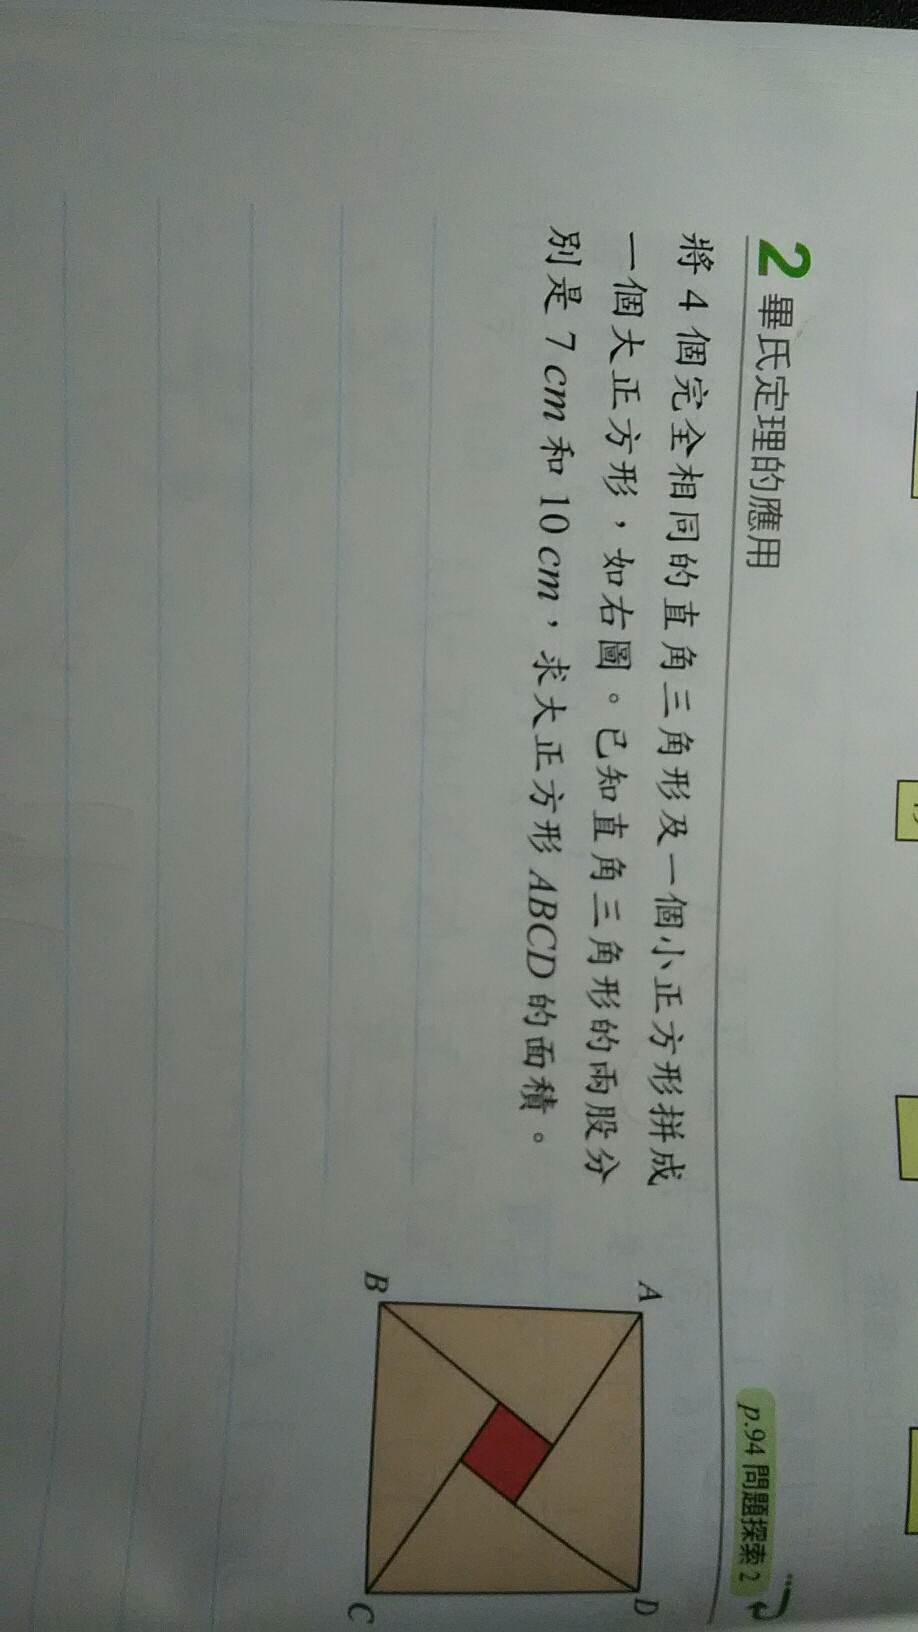 2 畢氏定理的應用
p.94 問題探索 2
將 4 個完全相同的直角三角形及一個小正方形拼成
一個大正方形，如右圖。已知直角三角形的兩股分
別是 7 cm 和 10 cm，求大正方形 ABCD 的面積。
A
D
B
C